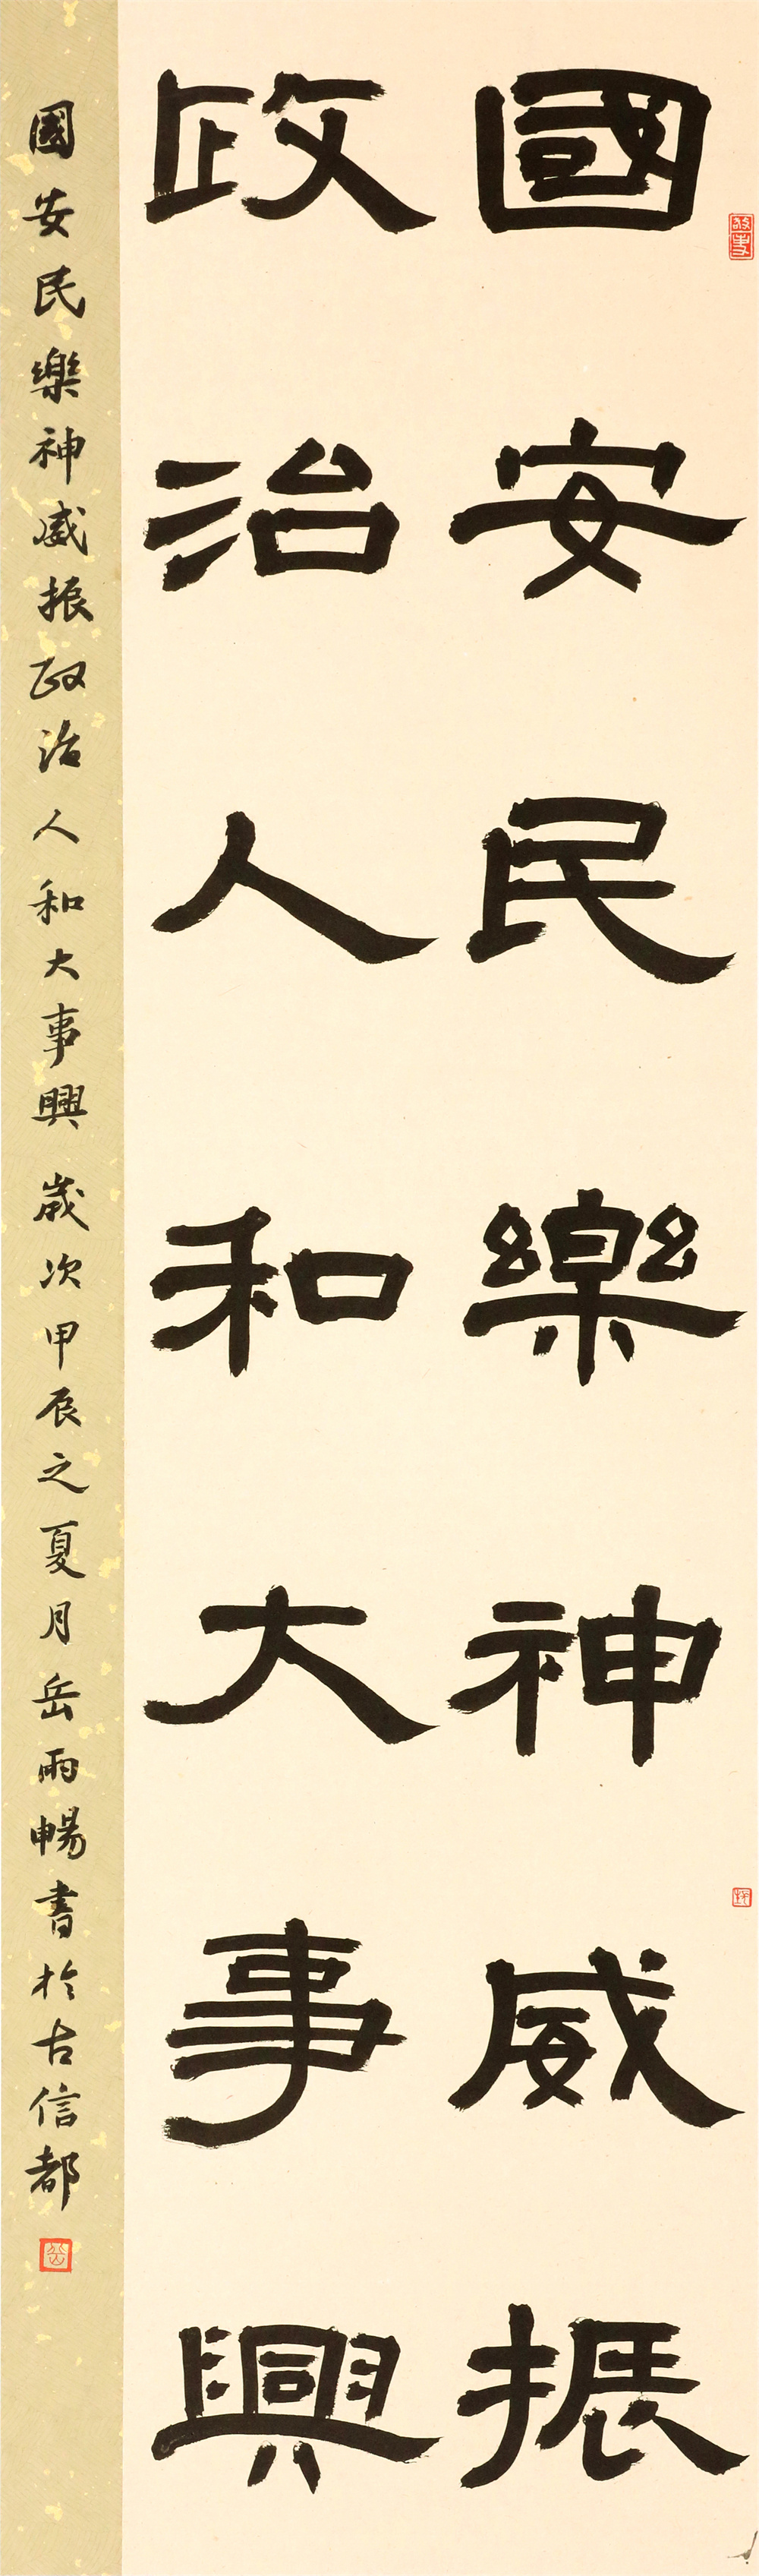 國安民樂神威振
政治人和大事興
國安民樂神威振政治人和大事興 歲次甲辰之夏月岳雨暢書於古信都